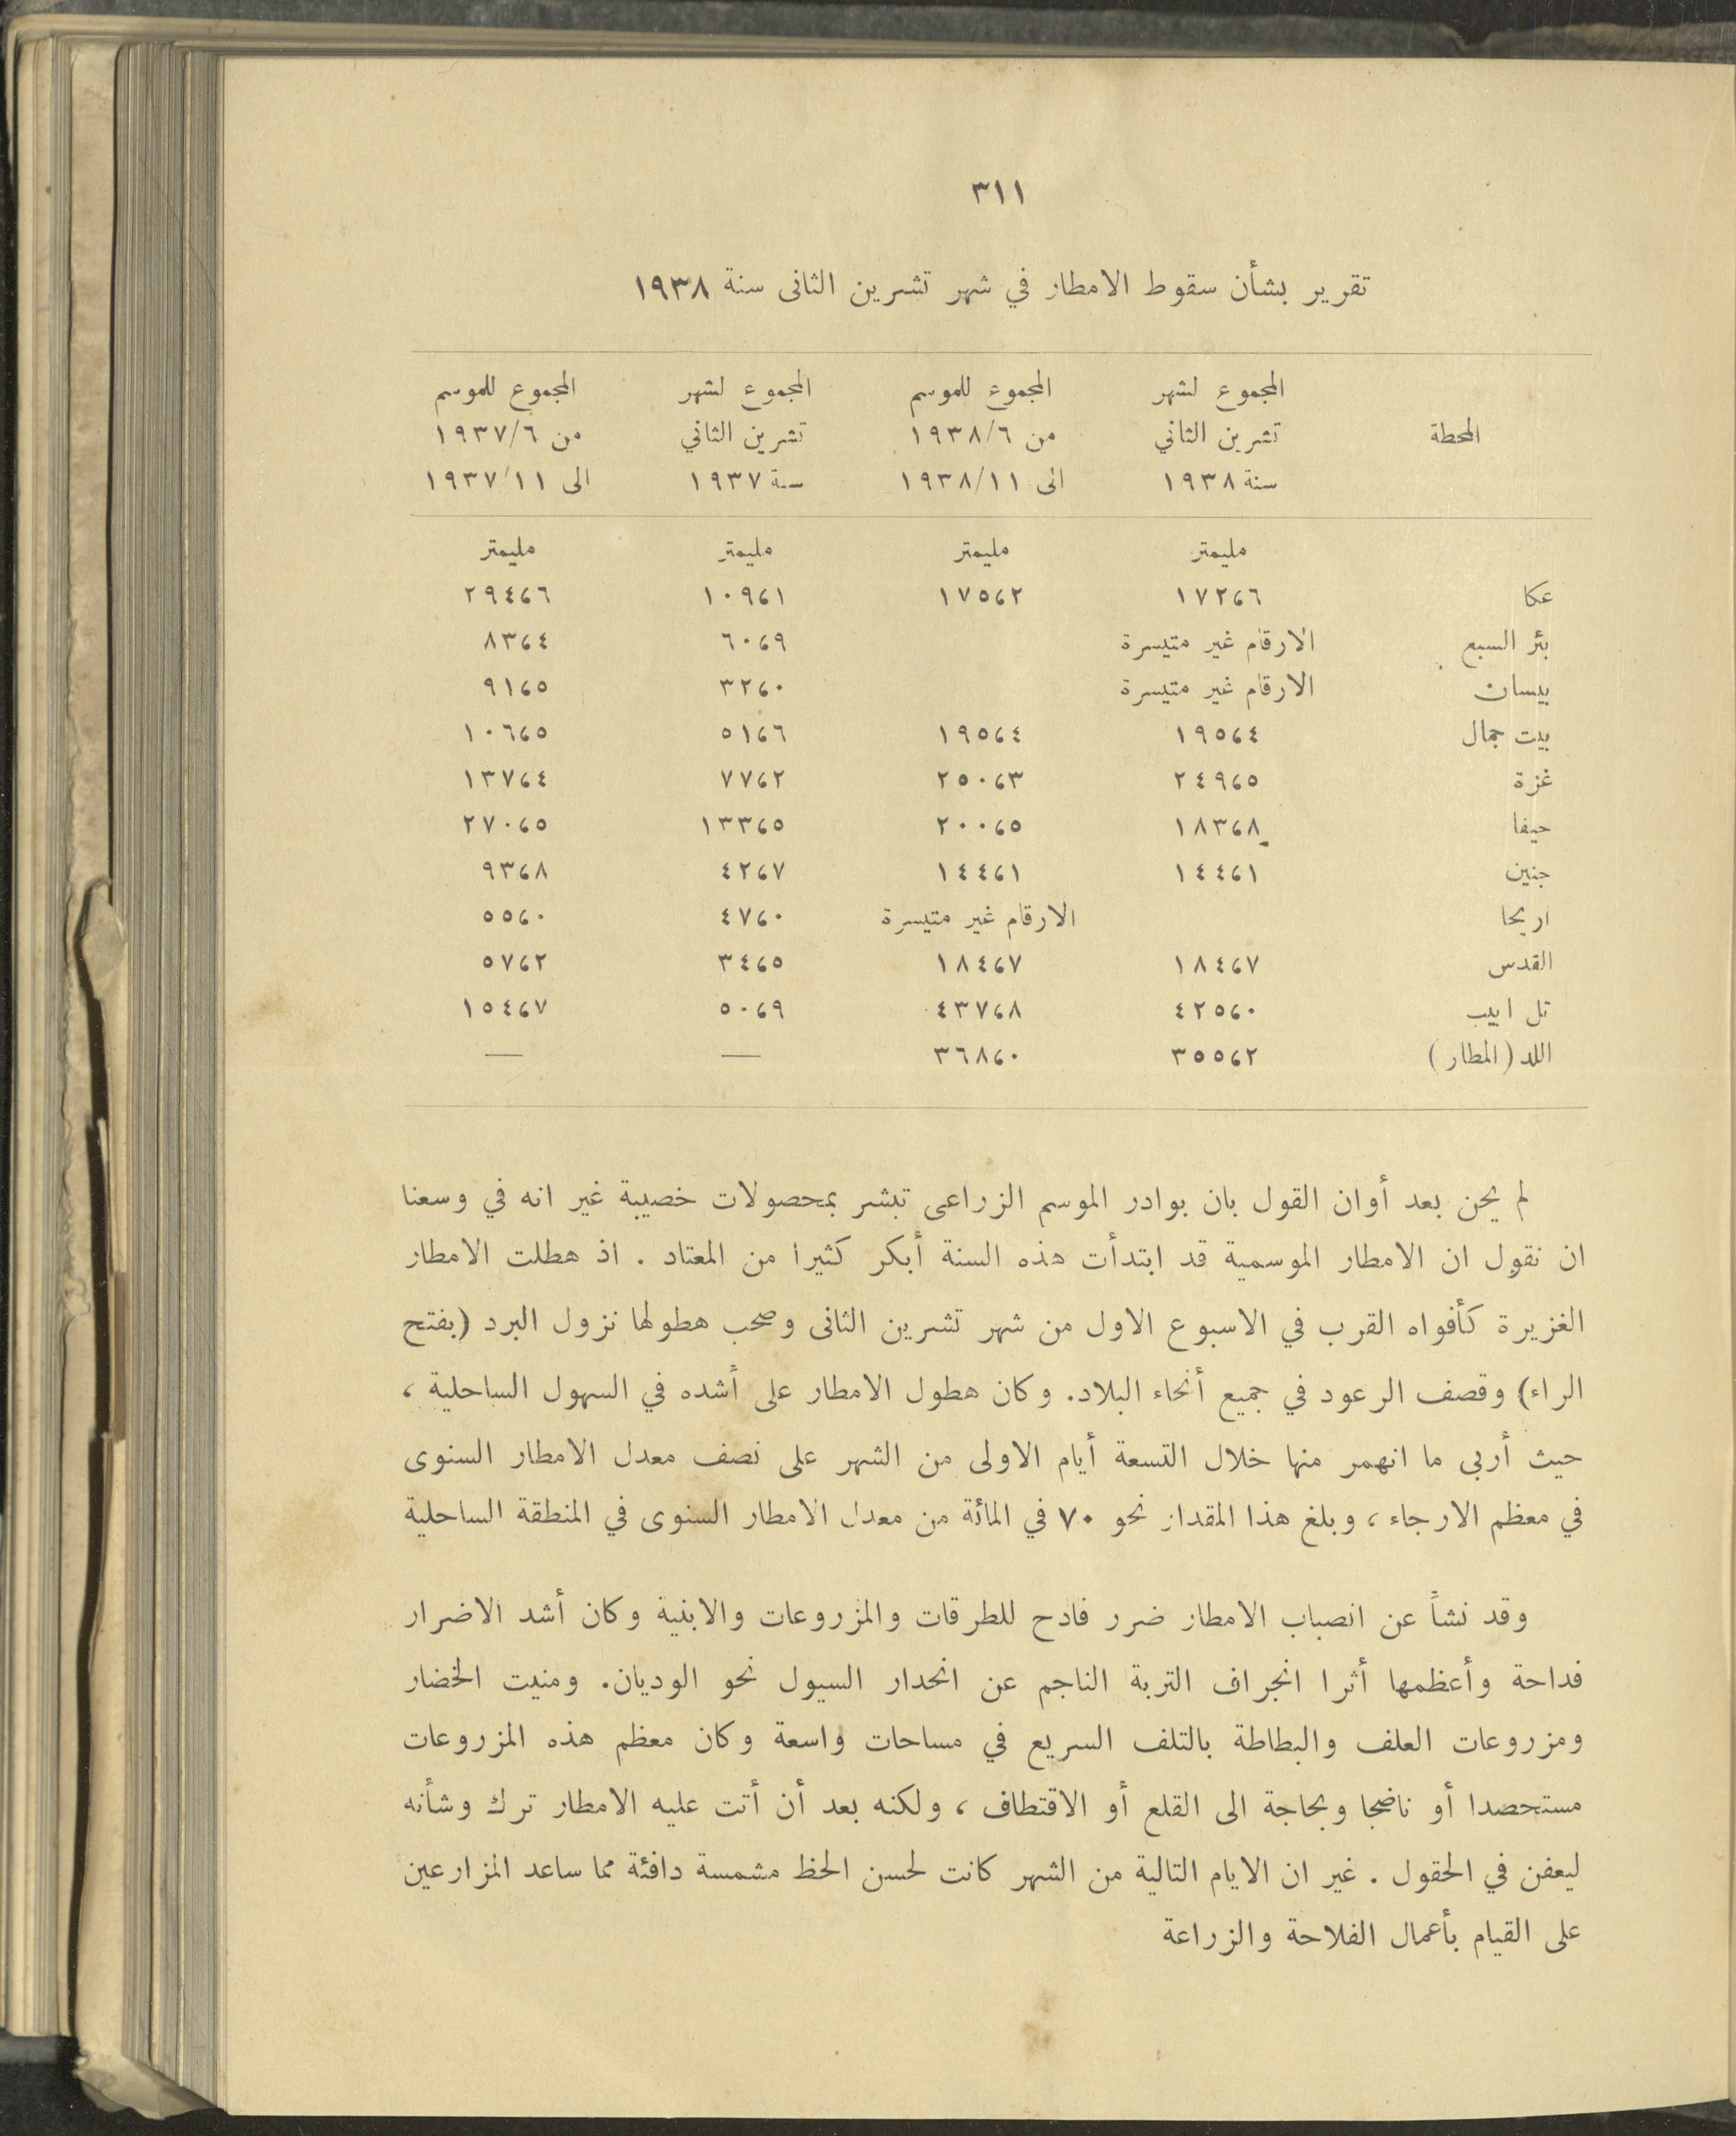 ٣١١
تقرير بشأن سقوط الامطار في شهر تشرين الثانى سنة ١٩٣٨
المجموع لشهر المجموع للموسم المجموع لشهر المجموع للموسم
المحطة تشرين الثاني من ١٩٣٨/٦ تشرين الثاني من ١٩٣٧/٦
سنة ١٩٣٨ الى ١٩٣٨/١١ سنة ١٩٣٧ الى ١٩٣٧/١١
مليمتر مليمتر مليمتر مليمتر
عكا ١٧٢،٦ ١٧٥،٢ ١٠٩،١ ٢٩٤،٦
بئر السبع الارقام غير متيسرة ٦٠،٩ ٨٣،٤
بيسان الارقام غير متيسرة ٣٢،٠ ٩١،٥
بيت جمال ١٩٥،٤ ١٩٥،٤ ٥١،٦ ١٠٦،٥
غزة ٢٤٩،٥ ٢٥٠،٣ ٧٧،٢ ١٣٧،٤
حيفا ١٨٣،٨ ٢٠٠،٥ ١٣٣،٥ ٢٧٠،٥
جنين ١٤٤،١ ١٤٤،١ ٤٢،٧ ٩٣،٨
اريحا الارقام غير متيسرة ٤٧،٠ ٥٥،٠
القدس ١٨٤،٧ ١٨٤،٧ ٣٤،٥ ٥٧،٢
تل ابيب ٤٢٥،٠ ٤٣٧،٨ ٥٠،٩ ١٥٤،٧
اللد (المطار) ٣٥٥،٢ ٣٦٨،٠ — —
لم يحن بعد أوان القول بان بوادر الموسم الزراعى تبشر بمحصولات خصيبة غير انه في وسعنا
ان نقول ان الامطار الموسمية قد ابتدأت هذه السنة أبكر كثيرا من المعتاد . اذ هطلت الامطار
الغزيرة كأفواه القرب في الاسبوع الاول من شهر تشرين الثانى وصحب هطولها نزول البرد (بفتح
الراء) وقصف الرعود في جميع أنحاء البلاد. وكان هطول الامطار على أشده في السهول الساحلية ،
حيث أربى ما انهمر منها خلال التسعة أيام الاولى من الشهر على نصف معدل الامطار السنوى
في معظم الارجاء ، وبلغ هذا المقدار نحو ٧٠ في المائة من معدل الامطار السنوى في المنطقة الساحلية
وقد نشأ عن انصباب الامطار ضرر فادح للطرقات والمزروعات والابنية وكان أشد الاضرار
فداحة وأعظمها أثرا انجراف التربة الناجم عن انحدار السيول نحو الوديان. ومنيت الخضار
ومزروعات العلف والبطاطة بالتلف السريع في مساحات واسعة وكان معظم هذه المزروعات
مستحصدا أو ناضجا وبحاجة الى القلع أو الاقتطاف ، ولكنه بعد أن أتت عليه الامطار ترك وشأنه
ليعفن في الحقول . غير ان الايام التالية من الشهر كانت لحسن الحظ مشمسة دافئة مما ساعد المزارعين
على القيام بأعمال الفلاحة والزراعة